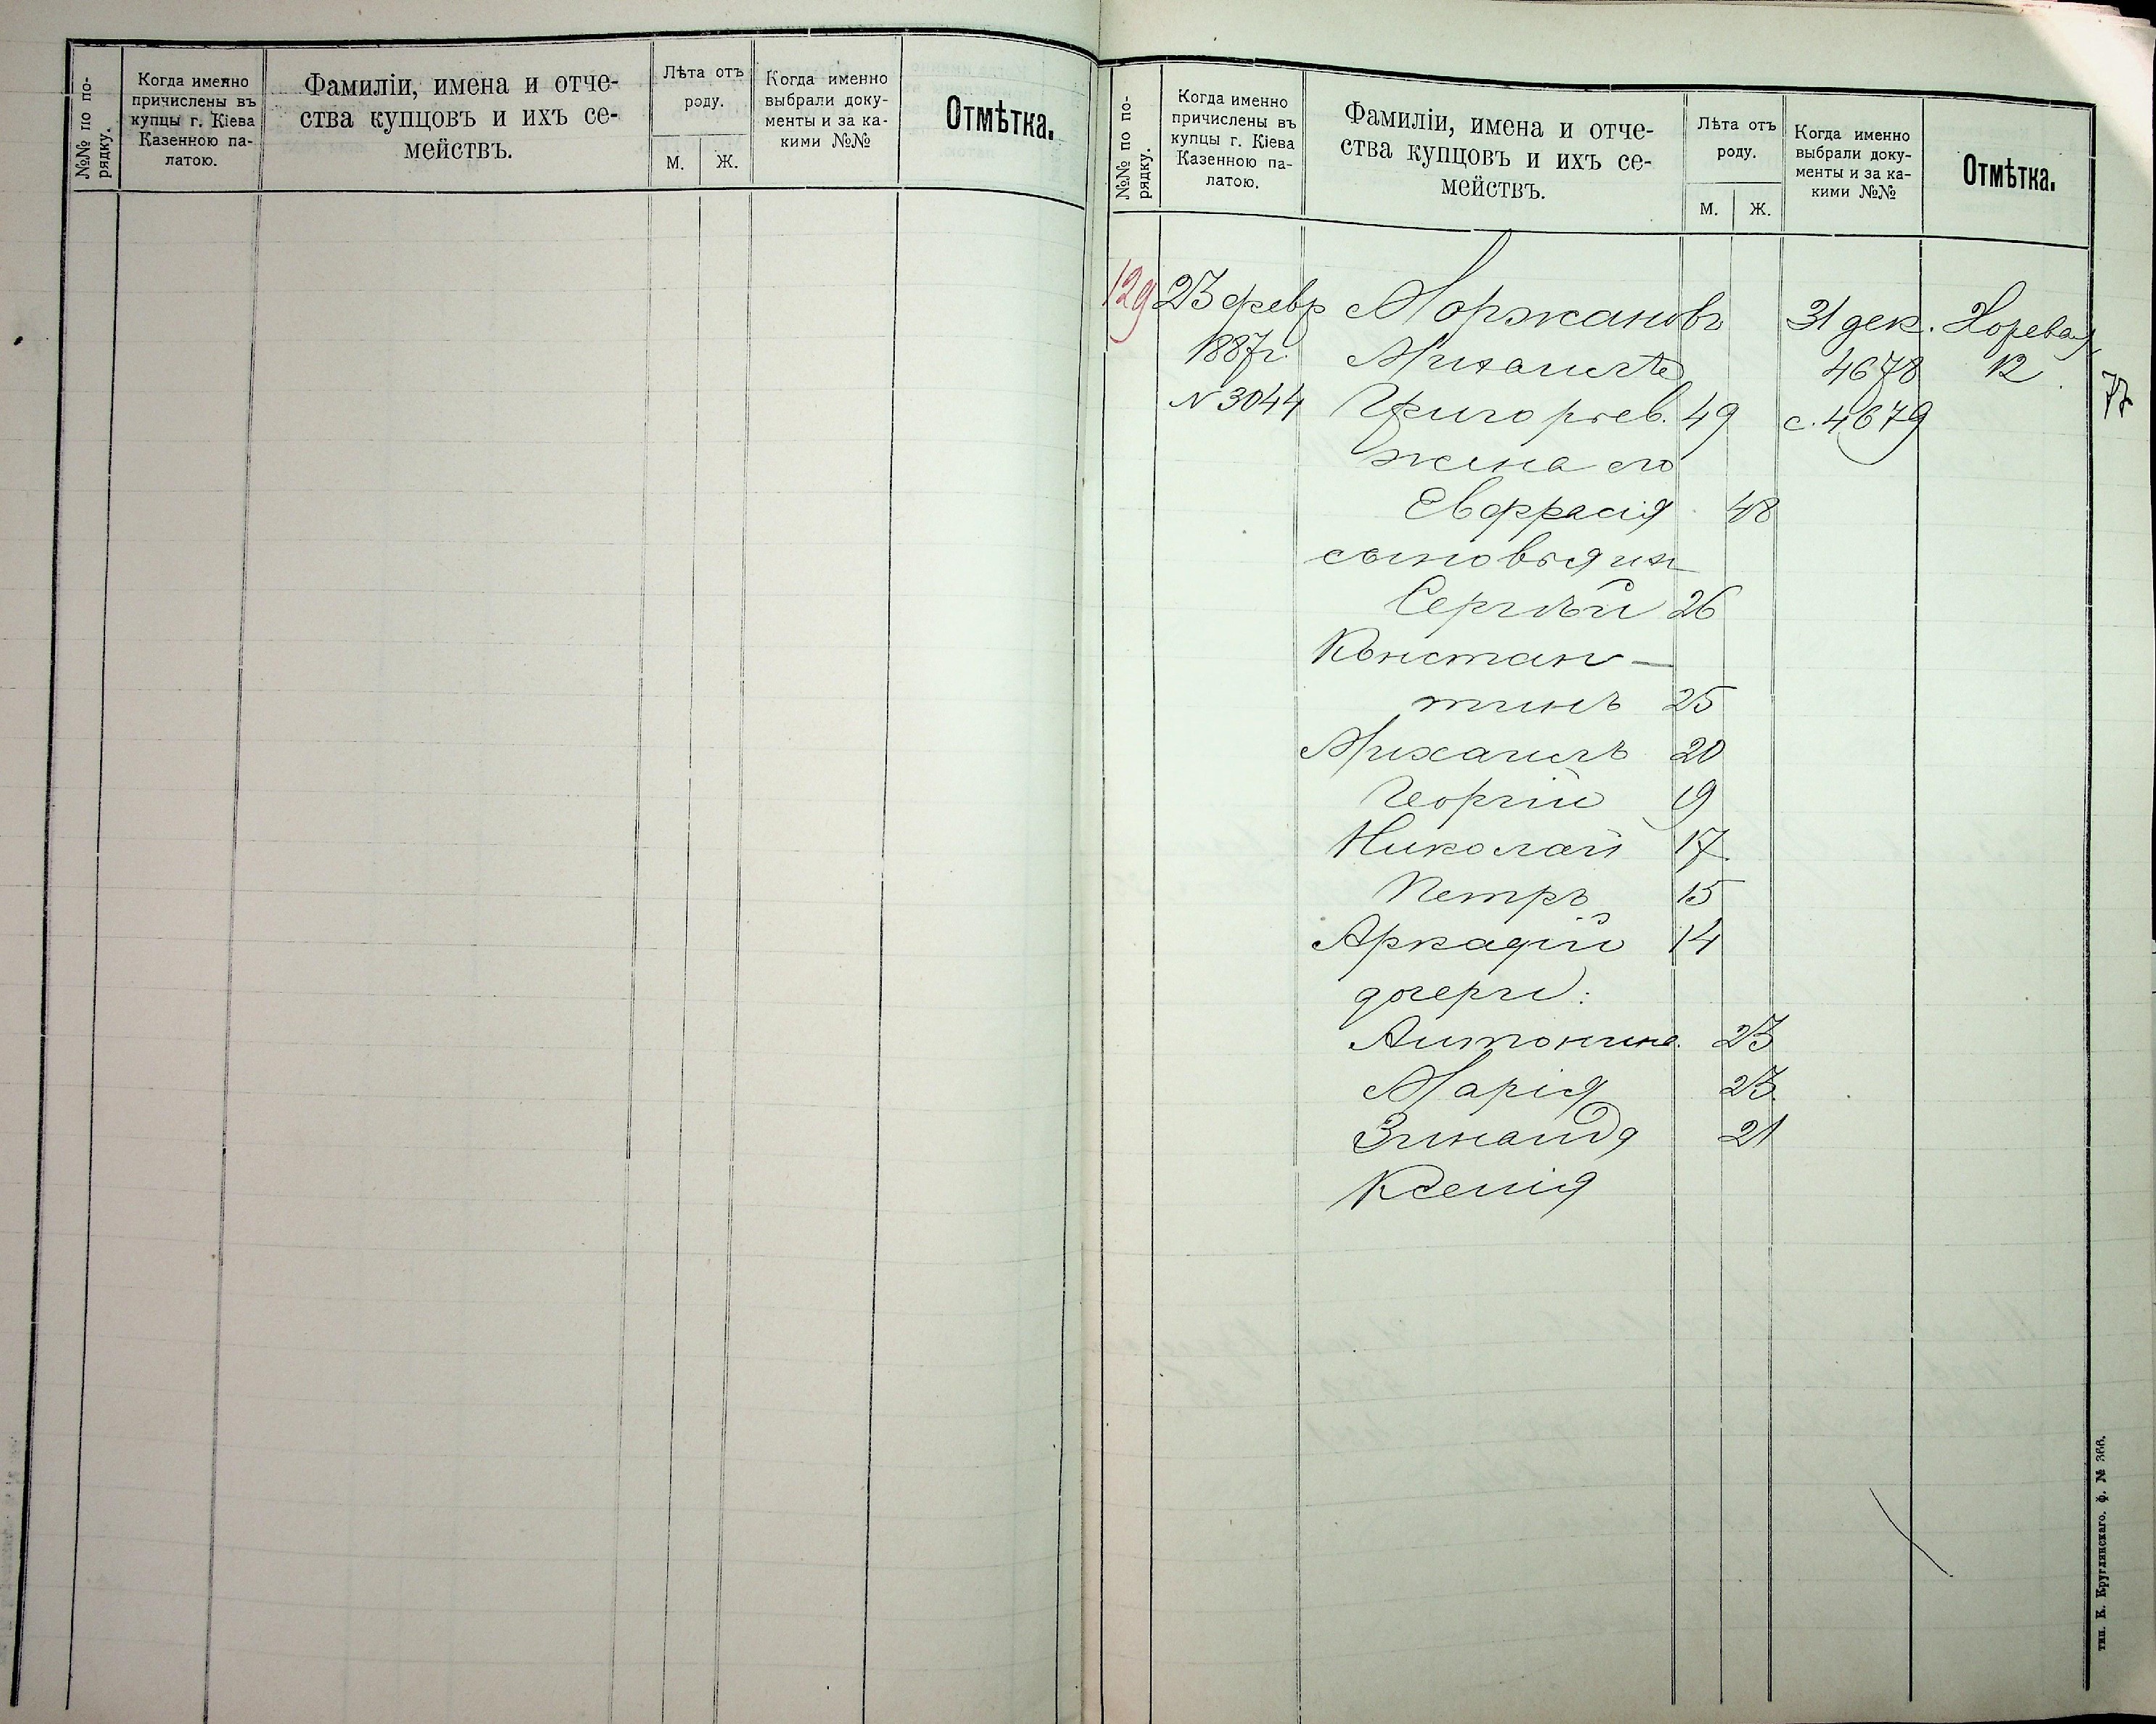 №№ по по-
рядку.
Когда именно
причислены въ
купцы г. Кіева
Казенною па-
латою.
Фамиліи, имена и отче-
ства купцовъ и ихъ се-
мействъ.
Лѣта отъ
роду.
М. Ж.
Когда именно
выбрали доку-
менты и за ка-
кими №№
Отмѣтка.
№№ по по-
рядку.
Когда именно
причислены въ
купцы г. Кіева
Казенною па-
латою.
Фамиліи, имена и отче-
ства купцовъ и ихъ се-
мействъ.
Лѣта отъ
роду.
М. Ж.
Когда именно
выбрали доку-
менты и за ка-
кими №№
Отмѣтка.
129 23 февр Моржановъ 31 дек. Хоревая
1887г. Михаилъ 4678 12
N 3044 Григорьев. 49 с. 4679
77
жена его
Евфрасія 48
сыновья их
Сергѣй 26
Констан-
тинъ 25
Михаилъ 20
Георгій 19
Николай 17
Петръ 15
Аркадій 14
дочери:
Антонина 23
Марія 23
Зинаида 21
Ксенія
тип. К. Круглянскаго. ф. № 366.